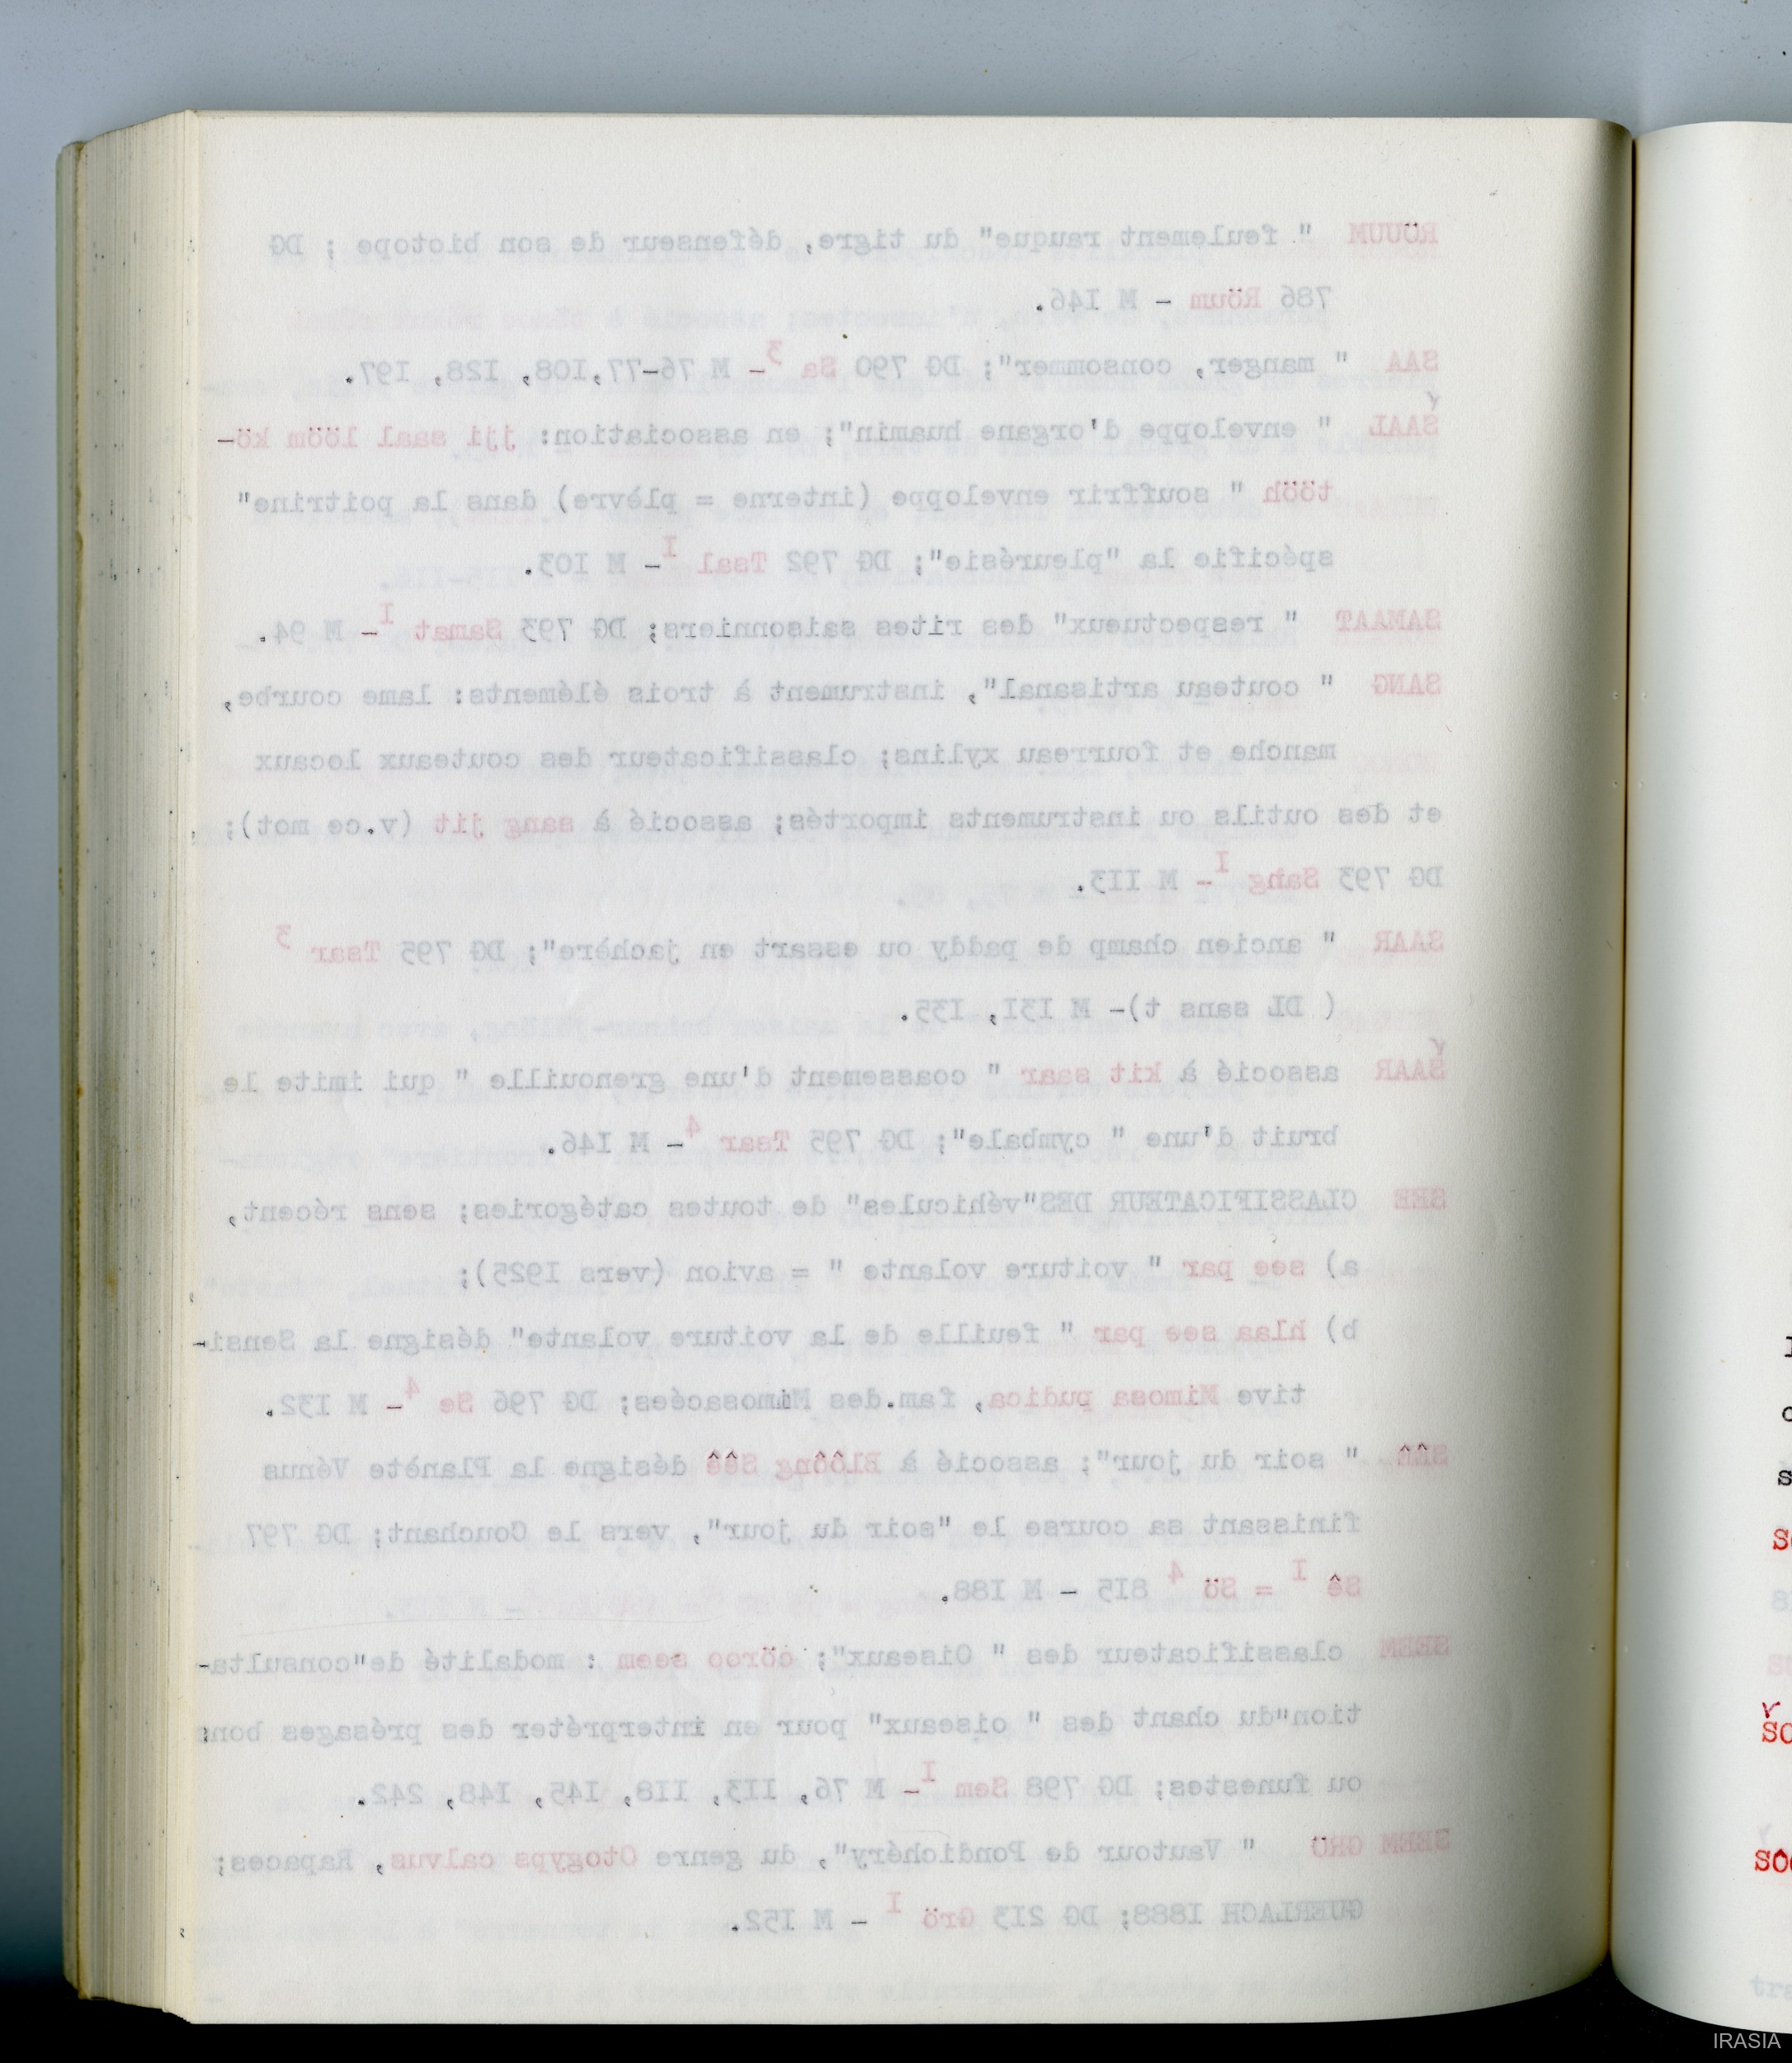 RÖUUM " feulement rauque" du tigre, défenseur de son biotope ; DG
786 Röum – M I46.
SAA " manger, consommer"; DG 790 Sa 3– M 76–77,I08, I28, I97.
SAAL " enveloppe d'organe huamin"; en association: jji saal lööm kö–
tööh " souffrir enveloppe (interne = plèvre) dans la poitrine"
spécifie la "pleurésie"; DG 792 Tsal I– M I03.
SAMAAT " respectueux" des rites saisonniers; DG 793 Samat I– M 94.
SANG " couteau artisanal", instrument à trois éléments: lame courbe,
manche et fourreau xylins; classificateur des couteaux locaux
et des outils ou instruments importés; associé à sang jit (v.ce mot);
DG 793 Sang I– M II3.
SAAR " ancien champ de paddy ou essart en jachère"; DG 795 Tsar 3
( DL sans t)– M I3I, I35.
SAAR associé à kit saar " coassement d'une grenouille " qui imite le
bruit d'une " cymbale"; DG 795 Tsar 4– M I46.
SEE CLASSIFICATEUR DES"véhicules" de toutes catégories; sens récent,
a) see par " voiture volante " = avion (vers I925);
b) hlaa see par " feuille de la voiture volante" désigne la Sensi–
tive Mimosa pudica, fam.des Mimosacées; DG 796 Se 4– M I32.
SÊÊ " soir du jour"; associé à Blôông Sêê désigne la Planète Vénus
finissant sa course le "soir du jour", vers le Couchant; DG 797
Sê I = Sö 4 8I5 – M I88.
SEEM classificateur des " Oiseaux"; cöroo seem : modalité de"consulta–
tion"du chant des " oiseaux" pour en interpréter des présages bons
ou funestes; DG 798 Sem I– M 76, II3, II8, I45, I48, 242.
SEEM GRÖ " Vautour de Pondichéry", du genre Otogyps calvus, Rapaces;
GUERLACH I888; DG 2I3 Grö I – M I52.
IRASIA